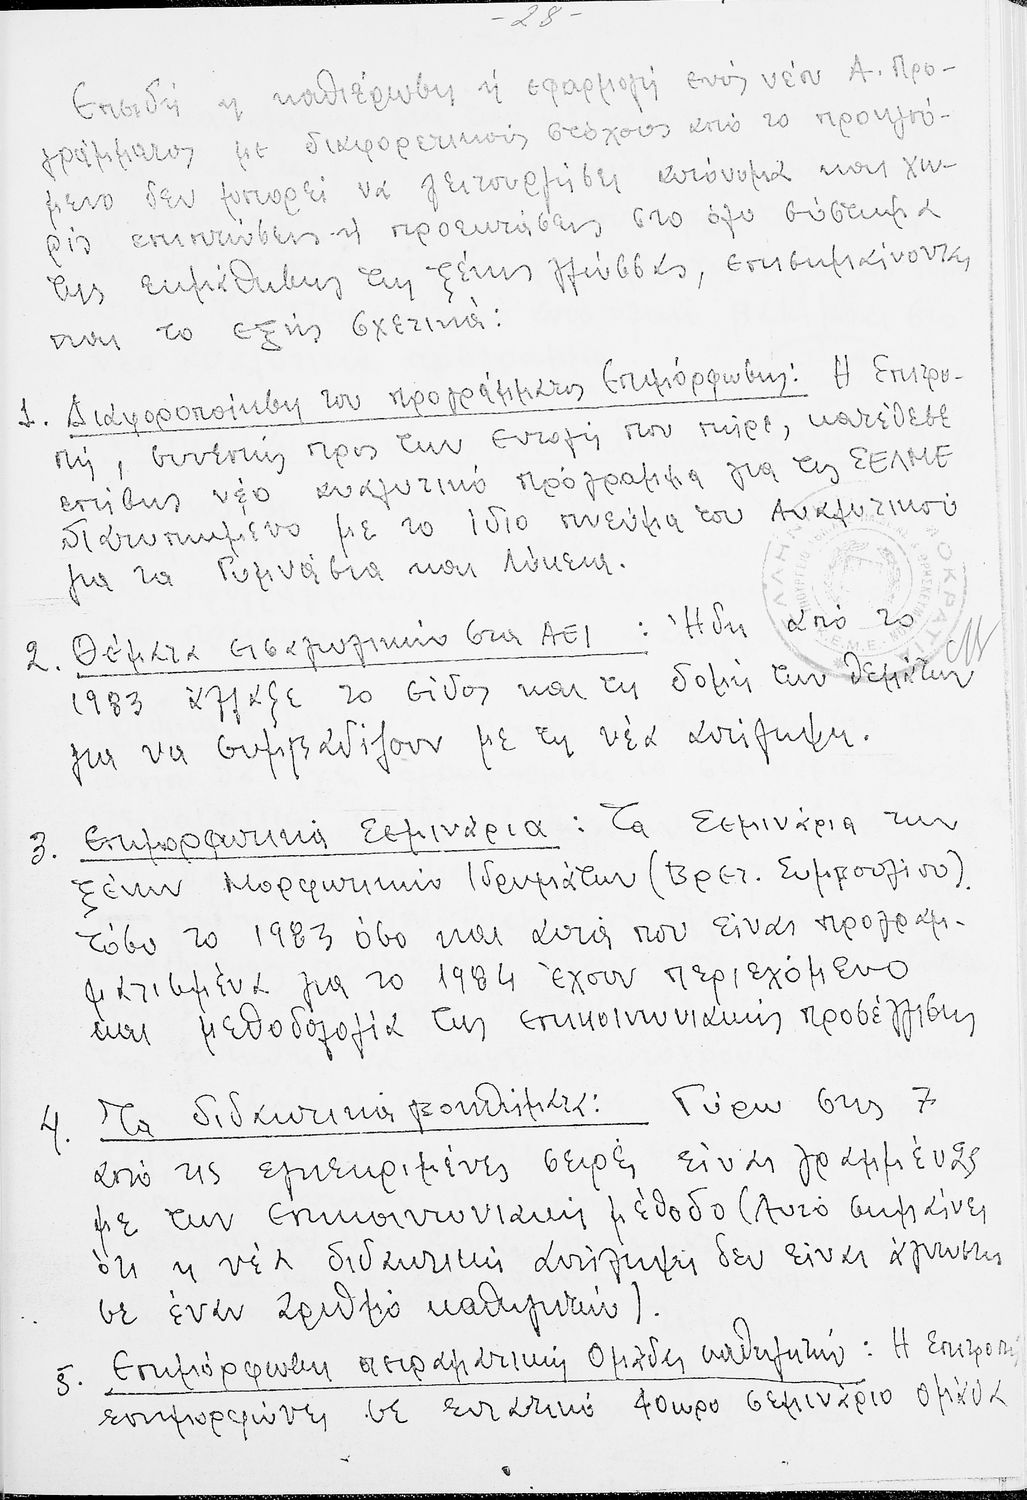 -28-
Επειδή η καθιέρωση ή εφαρμογή ενός νέου Α. Προ-
γράμματος με διαφορετικούς στόχους από το προηγού-
μενο δεν μπορεί να λειτουργήσει αυτόνομα και χω-
ρίς επιπτώσεις ή προεκτάσεις στο όλο σύστημα
της εκμάθησης της ξένης γλώσσας, επισημαίνονται
και το εξής σχετικά:
1. Διαφοροποίηση του προγράμματος Επιμόρφωσης: Η Επιτρο-
πή, συνεπής προς την εντολή που πήρε, κατέθεσε
επίσης νέο αναλυτικό πρόγραμμα για τις ΣΕΛΜΕ
διατυπωμένο με το ίδιο πνεύμα του Αναλυτικού
για τα Γυμνάσια και Λύκεια.
2. Θέματα εισαγωγικών στα ΑΕΙ : Ήδη από το
1983 άλλαξε το είδος και τη δομή των θεμάτων
για να συμβαδίζουν με τη νέα αντίληψη.
3. Επιμορφωτικά Σεμινάρια : Τα Σεμινάρια των
ξένων Μορφωτικών Ιδρυμάτων (Βρετ. Συμβουλίου)
τόσο το 1983 όσο και αυτά που είναι προγραμ-
ματισμένα για το 1984 έχουν περιεχόμενο
και μεθοδολογία της επικοινωνιακής προσέγγισης
4. Τα διδακτικά βοηθήματα: Γύρω στις 7
από τις εγκεκριμένες σειρές είναι γραμμένες
με την επικοινωνιακή μέθοδο (Αυτό σημαίνει
ότι η νέα διδακτική αντίληψη δεν είναι άγνωστη
σε έναν αριθμό καθηγητών).
5. Επιμόρφωση πειραματικής ομάδας καθηγητών : Η Επιτροπή
επιμορφώνει σε εντατικό 40ωρο σεμινάριο ομάδα